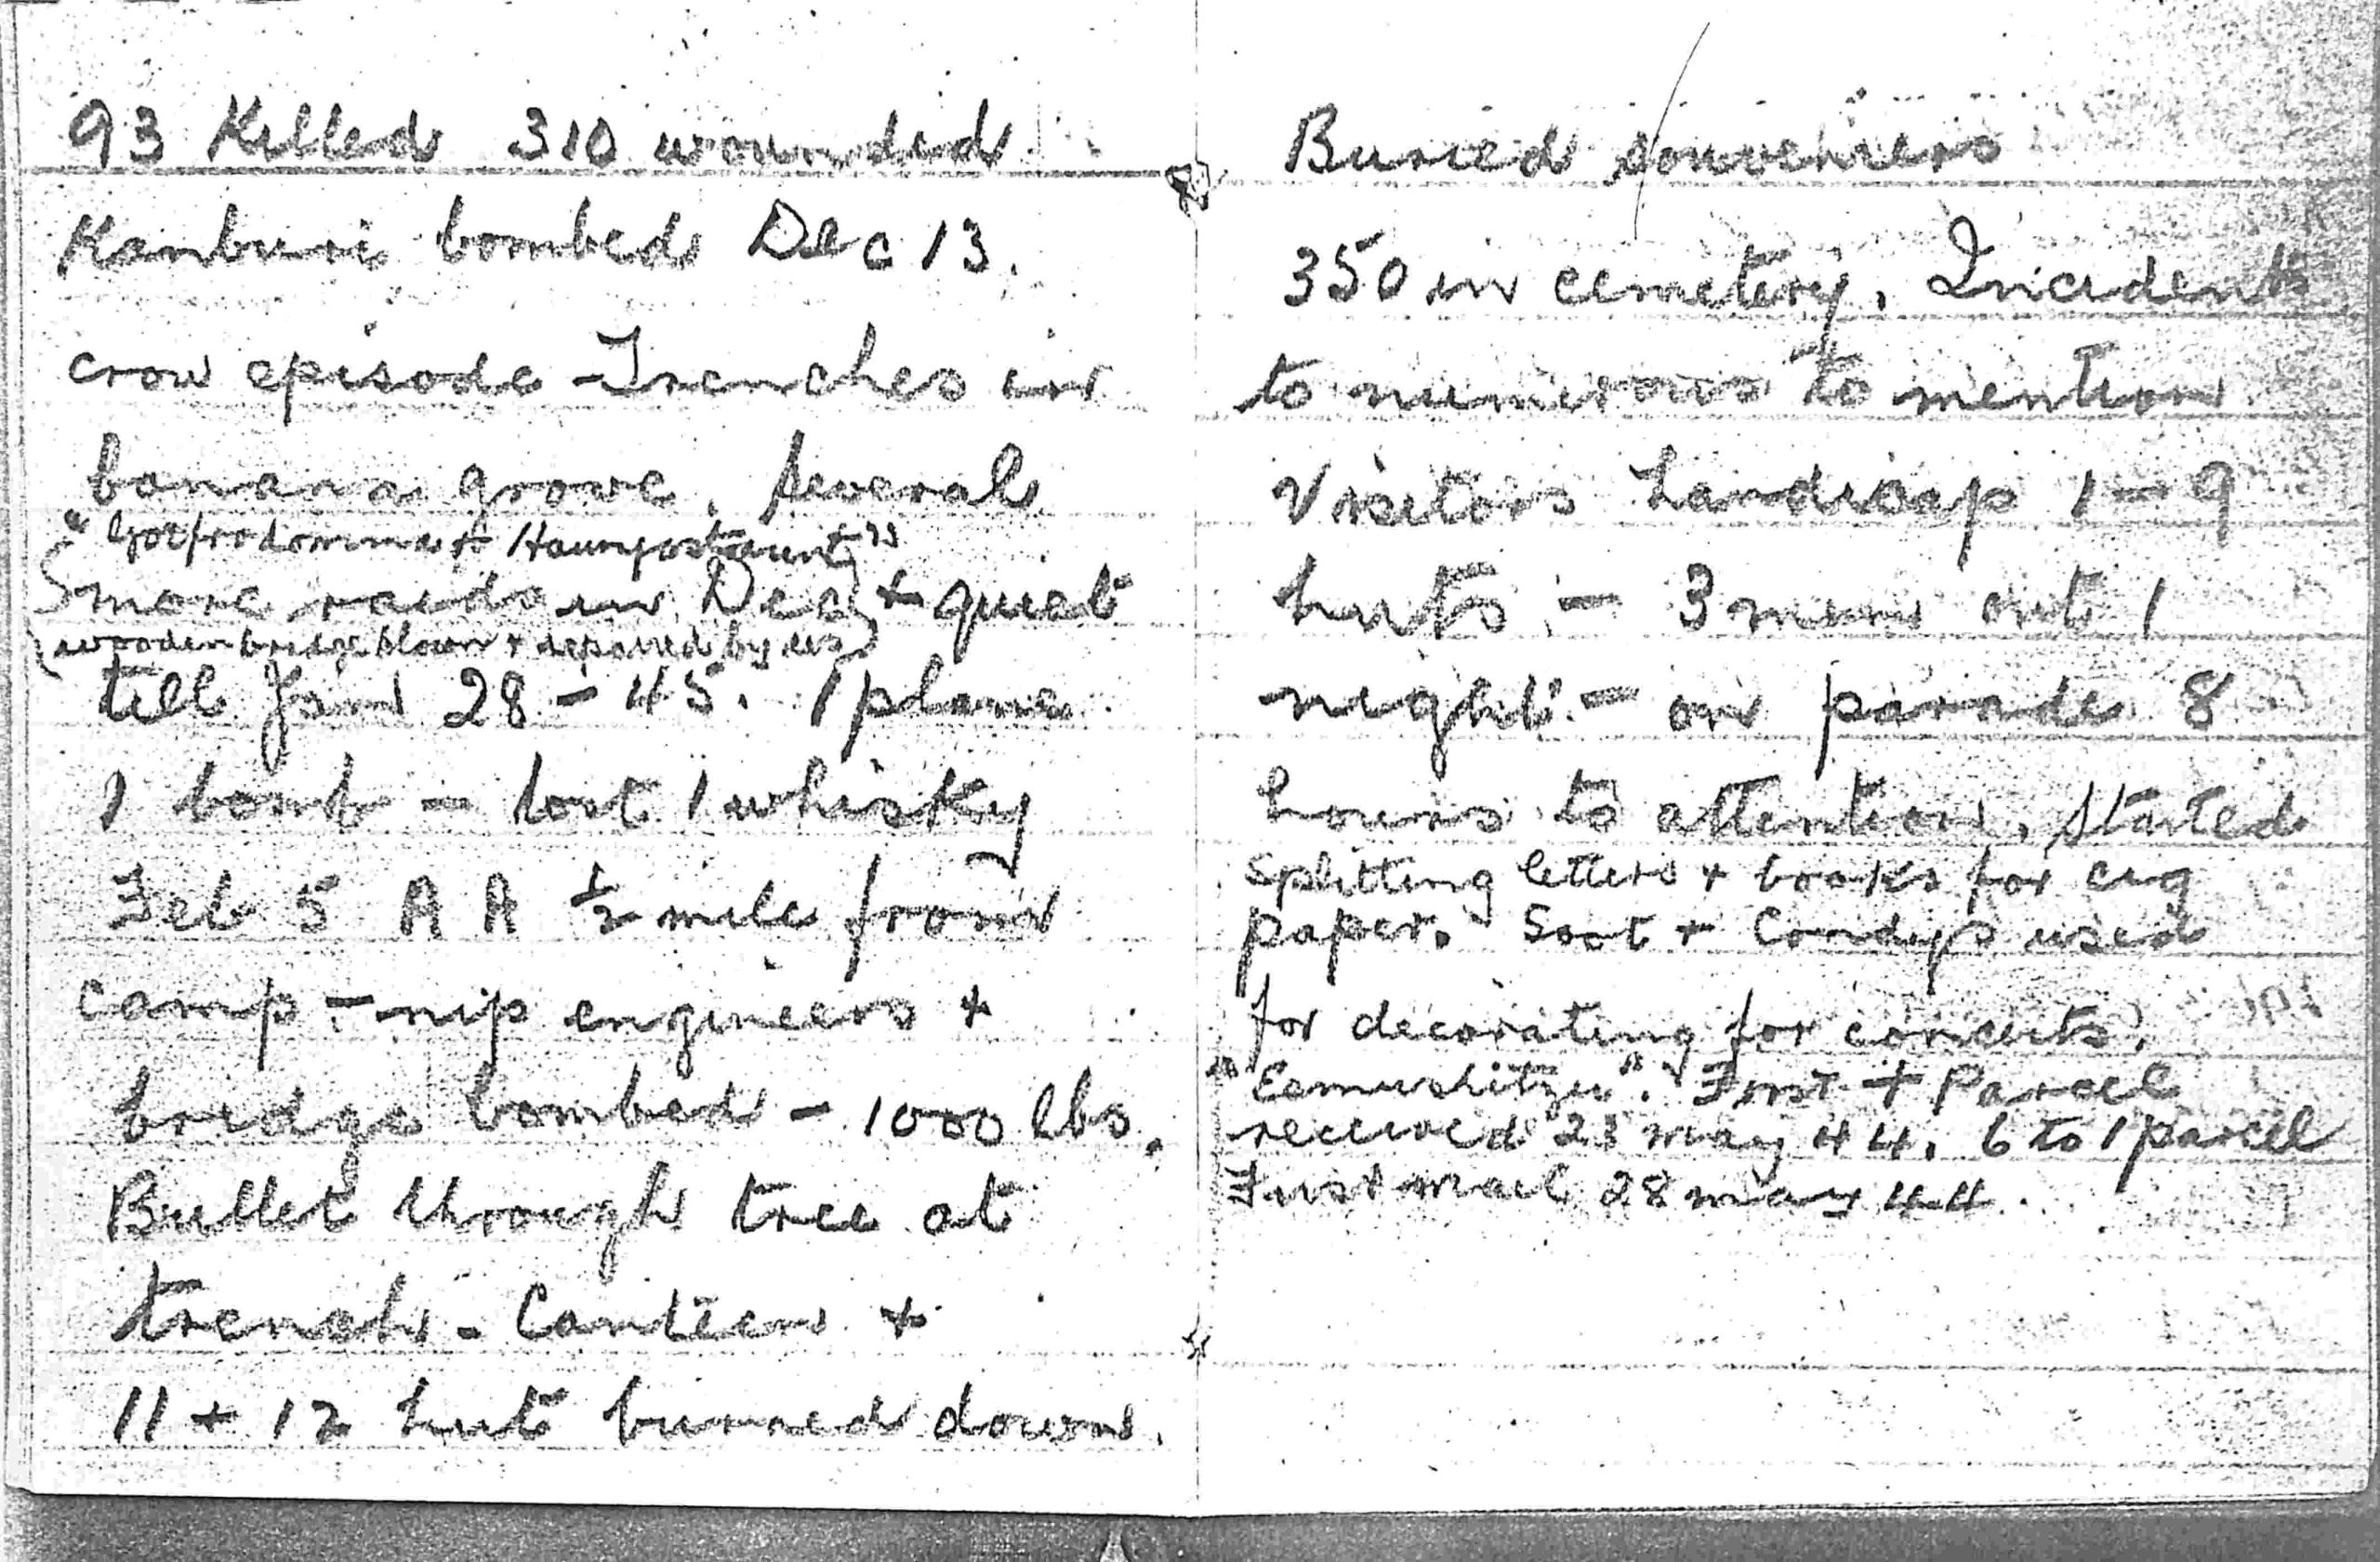 93 Killed 310 wounded
Kanburi bombed Dec 13.
crow episode - Trenches in
banana grove. Several
more raids in Dec + quiet
(wooden bridge blown + repaired by us)
till Jan 28 - 45. 1 plane
1 bomb - lost 1 whisky
Feb 5 A A ½ mile from
camp - nip engineers +
bridge bombed - 1000 lbs.
Bullet through tree at
trench - Canteen +
11 + 12 hut burned down.
Buried souveniers
350 in cemetery. Incidents
to numerous to mention
Visitors handicap 1 - 9
huts - 3 men out 1
night - on parade 8
hours to attention. Started
splitting letters + books for cig
paper. Soot + Condys used
for decorating for concerts.
First + Parcel
received 23 may 44. 6 to 1 parcel
First mail 28 may 44.